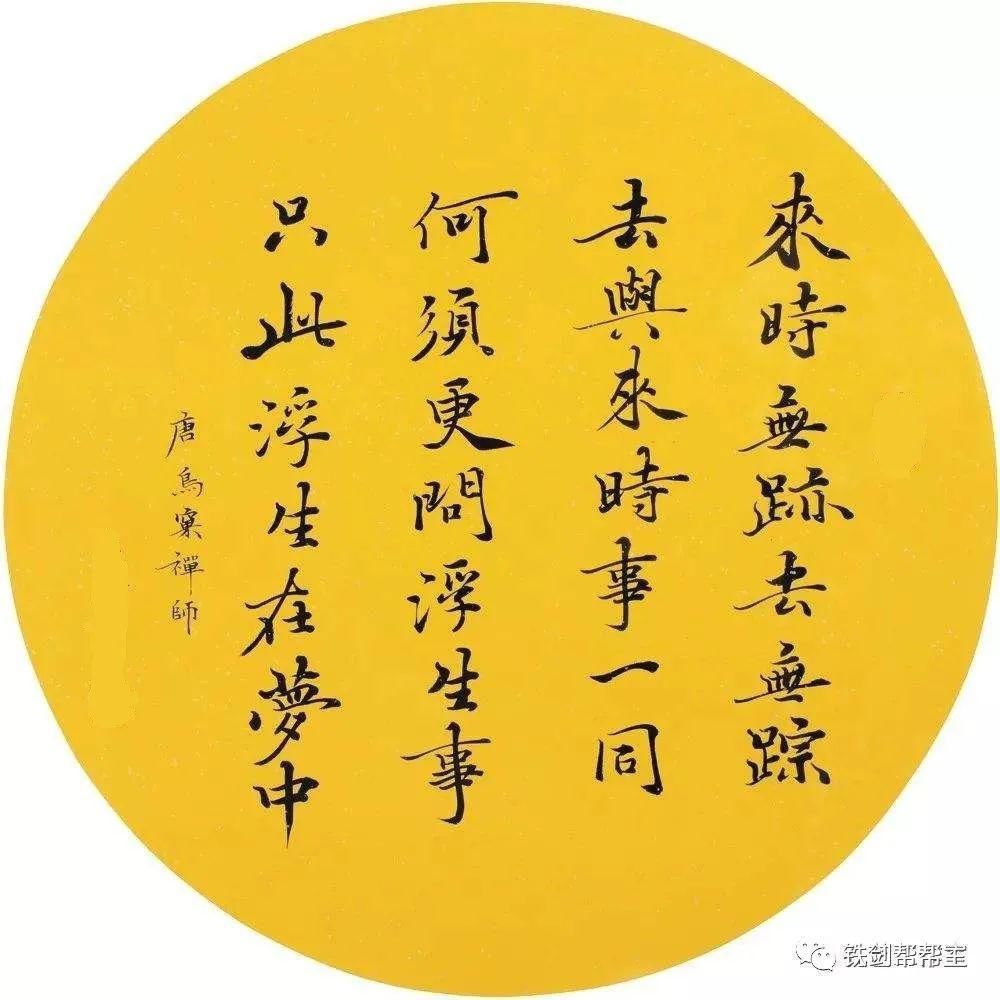 來時無跡去無踪
去與來時事一同
何須更問浮生事
只此浮生在夢中
唐鳥窠禪師
铁剑帮帮主